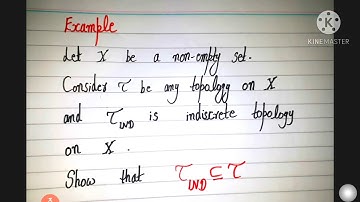 Example
Let X be a non-empty set.
Consider τ be any topology on X
and τ_IND is indiscrete topology
on X.
Show that τ_IND ⊆ τ
KINEMASTER